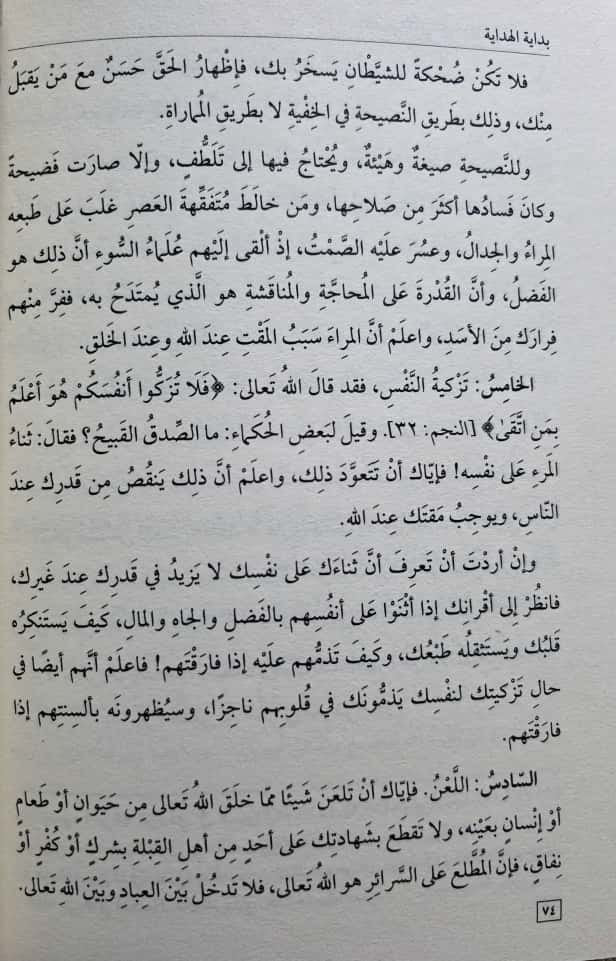 بداية الهداية
فلا تَكُنْ ضُحْكةً للشيَّطانِ يَسخَرُ بك، فإظْهارُ الحَقَّ حَسَنٌ معَ مَنْ يَقبَلُ
مِنْك، وذلِك بطَريقِ النَّصيحةِ في الخِفْيةِ لا بطَريقِ المُماراةِ.
وللنَّصيحةِ صيغةٌ وهَيْئةٌ، ويُحْتاجُ فيها إلى تَلَطُّفٍ، وإلّا صارَت فَضيحةً
وكانَ فَسادُها أكثَرَ مِن صَلاحِها، ومَن خالَطَ مُتَفَقِّهةَ العَصرِ غلَبَ عَلى طَبعِه
المِراءُ والجِدالُ، وعسُرَ علَيْه الصَّمْتُ، إذْ ألْقى إلَيْهم عُلَماءُ السُّوءِ أنَّ ذلِك هو
الفَضلُ، وأنَّ القُدْرةَ عَلى المُحاجّةِ والمُناقَشةِ هو الَّذي يُمتَدَحُ به، ففِرَّ مِنْهم
فِرارَك مِنَ الأسَدِ، واعلَمْ أنَّ المِراءَ سَبَبُ المَقْتِ عِندَ اللهِ وعِندَ الخَلقِ.
الخامِسُ: تَزْكيةُ النَّفْسِ، فقد قالَ اللهُ تَعالى: ﴿فَلَا تُزَكُّوا أَنفُسَكُمْ هُوَ أَعْلَمُ
بِمَنِ اتَّقَىٰ﴾ [النجم: ٣٢]. وقيلَ لبَعضِ الحُكَماءِ: ما الصِّدقُ القَبيحُ؟ فقالَ: ثَناءُ
المَرءِ عَلى نفْسِه! فإيّاك أنْ تَتَعوَّدَ ذلِك، واعلَمْ أنَّ ذلِك يَنقُصُ مِن قَدرِك عِندَ
النّاسِ، ويوجِبُ مَقتَك عِندَ اللهِ.
وإنْ أردْتَ أنْ تَعرِفَ أنَّ ثَناءَك عَلى نفْسِك لا يَزيدُ في قَدرِك عِندَ غَيرِك،
فانظُرْ إلى أقْرانِك إذا أثنَوْا عَلى أنفُسِهم بالفَضلِ والجاهِ والمالِ، كَيفَ يَستَنكِرُه
قَلبُك ويَستَثقِلُه طَبْعُك، وكَيفَ تَذمُّهم علَيْه إذا فارَقْتَهم! فاعلَمْ أنَّهم أيضًا في
حالِ تَزْكيتِك لنفْسِك يَذمُّونَك في قُلوبِهم ناجِزًا، وسيُظهِرونَه بألسِنتِهم إذا
فارَقْتَهم.
السّادِسُ: اللَّعْنُ. فإيّاك أنْ تَلعَنَ شَيئًا ممّا خلَقَ اللهُ تَعالى مِن حَيَوانٍ أوْ طَعامٍ
أوْ إنْسانٍ بعَيْنِه، ولا تَقطَعْ بشَهادتِك عَلى أحَدٍ مِن أهلِ القِبْلةِ بشِركٍ أوْ كُفْرٍ أوْ
نِفاقٍ، فإنَّ المُطَّلِعَ عَلى السَّرائِرِ هو اللهُ تَعالى، فلا تَدخُلْ بَيْنَ العِبادِ وبَيْنَ اللهِ تَعالى.
٧٤